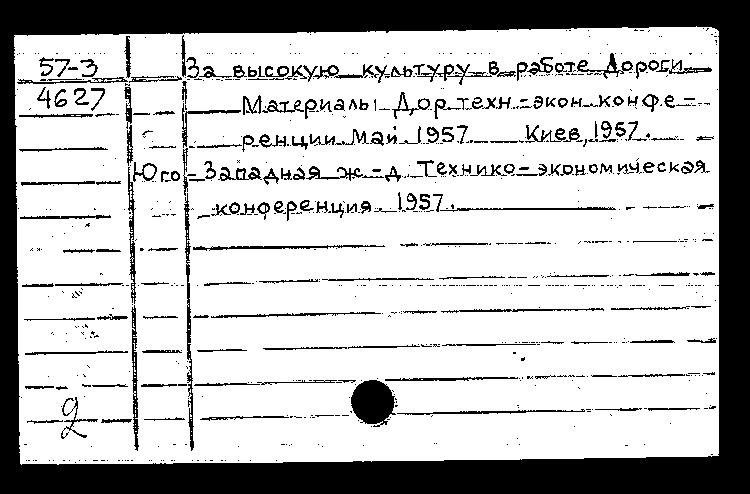 57-3 За высокую культуру в работе Дороги
4627 Материалы Дор. техн.-экон. конфе-
ренции. Май. 1957. Киев, 1957.
Юго-Западная ж.-д. Технико-экономическая
конференция. 1957.